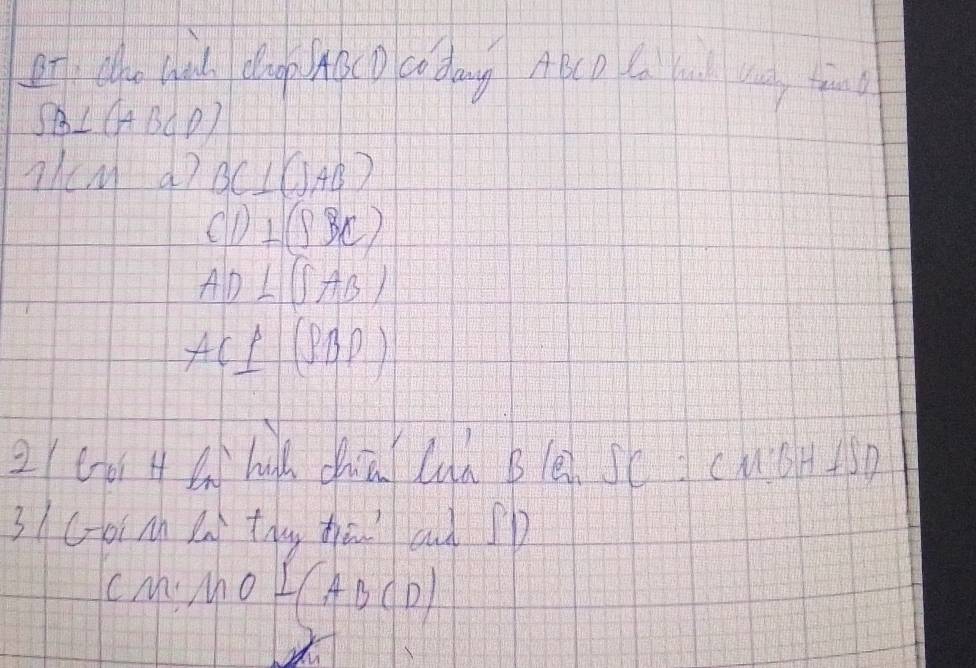 BT: Cho hình chóp SABCD có đáy ABCD là hình vuông tâm O
SB⊥(ABCD)
1/CM a) BC⊥(SAB)
CD⊥(SBC)
AD⊥(SAB)
AC⊥(SBD)
2/ Gọi H là hình chiếu của B lên SC : CM: BH⊥SD
3/ Gọi M là trung điểm của SD
CM: MO⊥(ABCD)